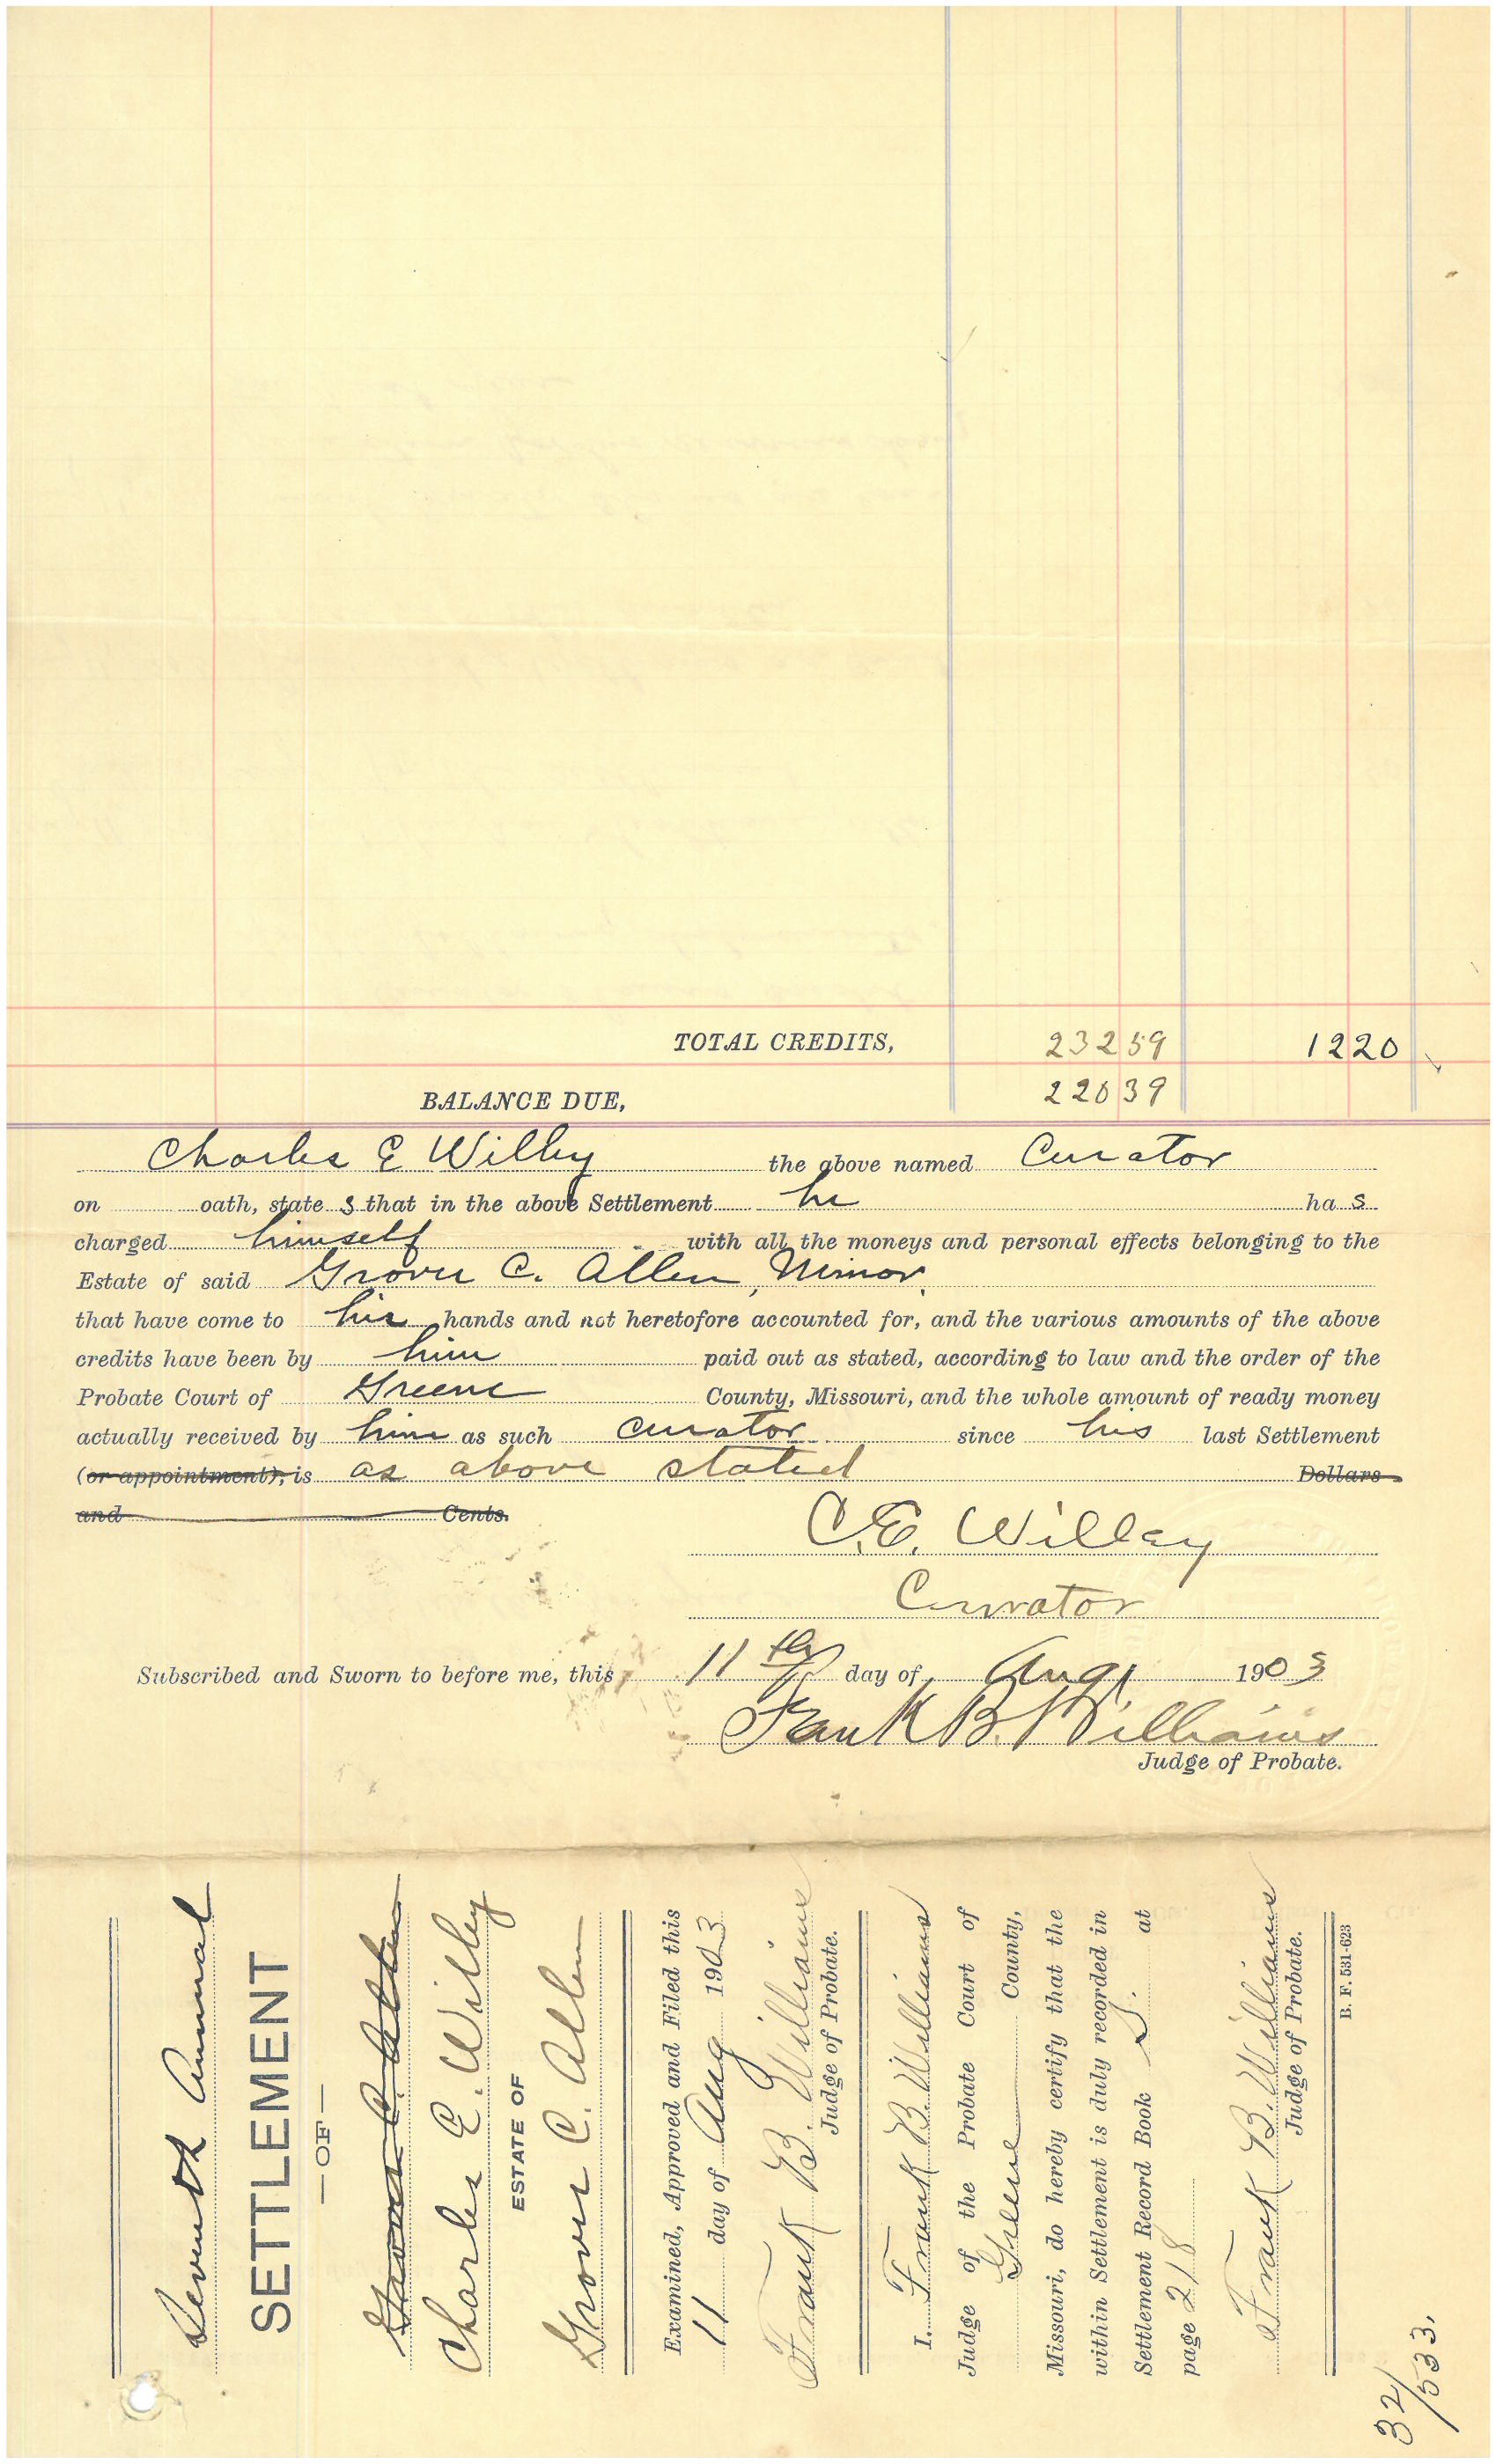 TOTAL CREDITS, 232 59 12 20
BALANCE DUE, 220 39
Charles E Willey the above named Curator
on oath, state s that in the above Settlement he ha s
charged himself with all the moneys and personal effects belonging to the
Estate of said Grover C. Allen, Minor.
that have come to his hands and not heretofore accounted for, and the various amounts of the above
credits have been by him paid out as stated, according to law and the order of the
Probate Court of Greene County, Missouri, and the whole amount of ready money
actually received by him as such curator since his last Settlement
(or appointment), is as above stated Dollars
and Cents.
C. E. Willey
Curator
Subscribed and Sworn to before me, this 11th day of Aug 1903
Frank B. Williams
Judge of Probate.
Seventh Annual
SETTLEMENT
—OF—
Grover C. Allen
Charles E. Willey
ESTATE OF
Grover C. Allen
Examined, Approved and Filed this
11 day of Aug 1903
Frank B. Williams
Judge of Probate.
I, Frank B. Williams
Judge of the Probate Court of
Greene County,
Missouri, do hereby certify that the
within Settlement is duly recorded in
Settlement Record Book S. at
page 218
Frank B. Williams
Judge of Probate.
B. F. 531-623
32/533.